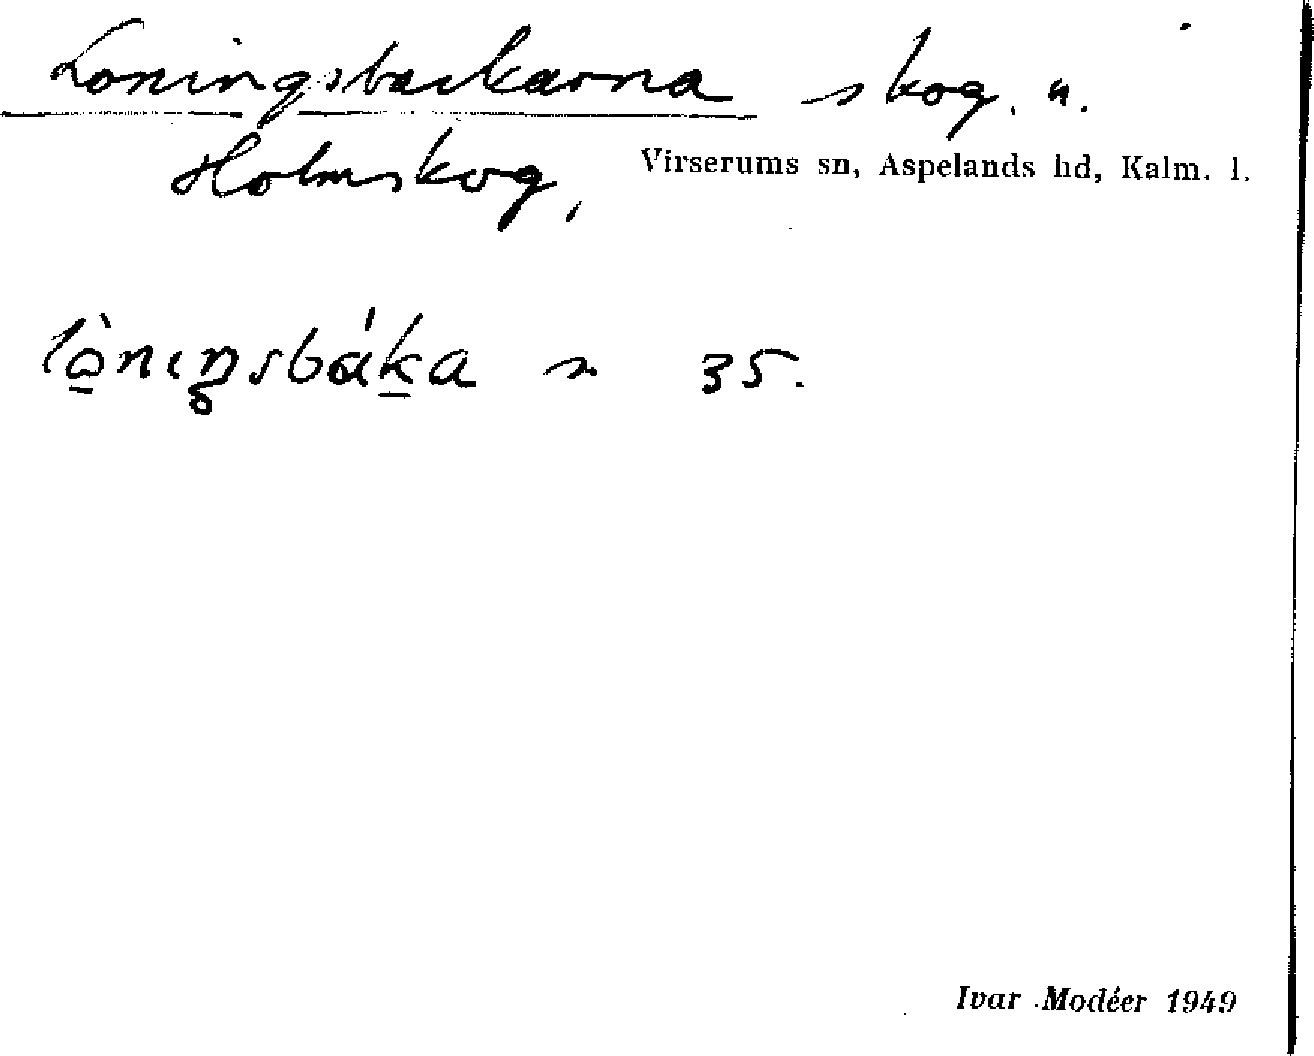 Loningsbackarna skog. u.
Holmskog, Virserums sn, Aspelands hd, Kalm. l.
lò̠nıŋsbáka n 35.
Ivar Modéer 1949